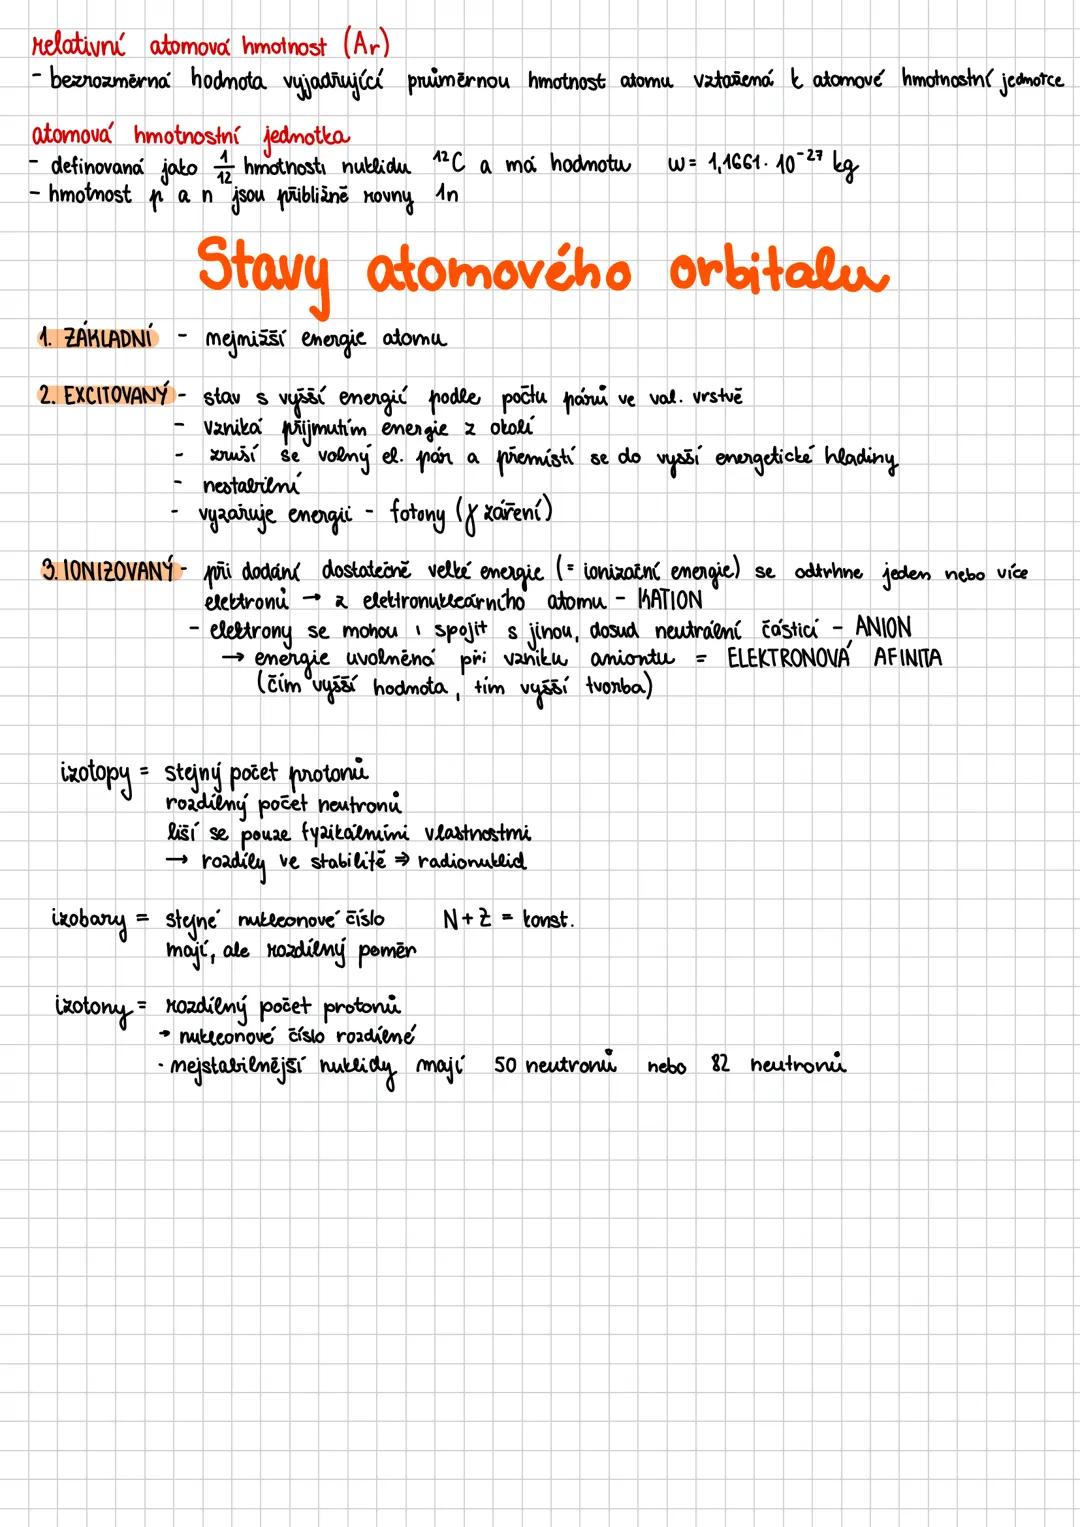 relativní atomová hmotnost (Ar)
- bezrozměrná hodnota vyjadřující průměrnou hmotnost atomu vztažená k atomové hmotnostní jednotce
atomová hmotnostní jednotka
- definovaná jako 1/12 hmotnosti nuklidu ¹²C a má hodnotu w = 1,1661 · 10⁻²⁷ kg
- hmotnost p a n jsou přibližně rovny 1n
Stavy atomového orbitalu
1. ZÁKLADNÍ - nejnižší energie atomu
2. EXCITOVANÝ - stav s vyšší energií podle počtu párů ve val. vrstvě
- vzniká přijmutím energie z okolí
- zruší se volný el. pár a přemístí se do vyšší energetické hladiny
- nestabilní
- vyzařuje energii - fotony (γ záření)
3. IONIZOVANÝ - při dodání dostatečně velké energie (= ionizační energie) se odtrhne jeden nebo více
elektronů → z elektronukleárního atomu - KATION
- elektrony se mohou i spojit s jinou, dosud neutrální částicí - ANION
→ energie uvolněná při vzniku aniontu = ELEKTRONOVÁ AFINITA
(čím vyšší hodnota, tím vyšší tvorba)
izotopy = stejný počet protonů
rozdílný počet neutronů
liší se pouze fyzikálními vlastnostmi
→ rozdíly ve stabilitě ⇒ radionuklid
izobary = stejné nukleonové číslo N + Z = konst.
mají, ale rozdílný poměr
izotony = rozdílný počet protonů
→ nukleonové číslo rozdílné
· nejstabilnější nuklidy mají 50 neutronů nebo 82 neutronů